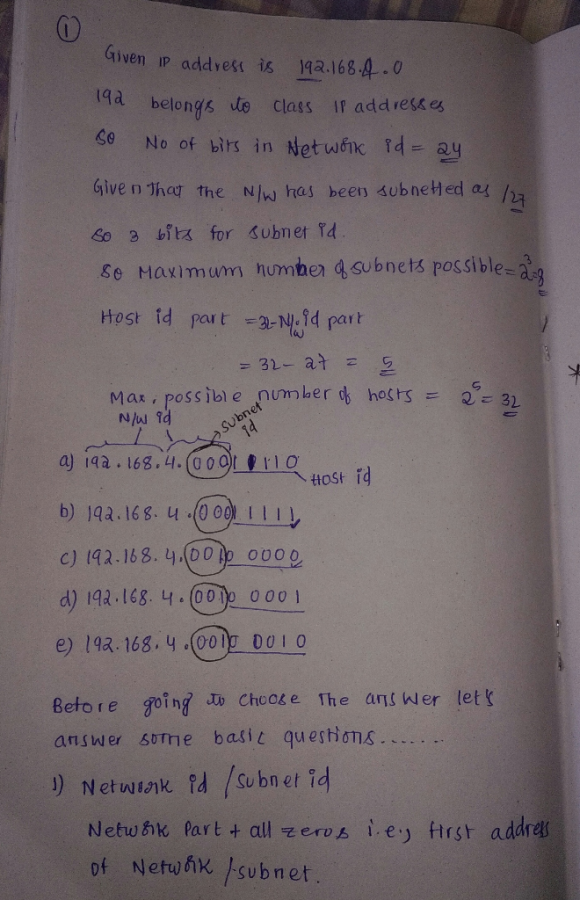 ①
Given IP address is 192.168.4.0
192 belongs to class IP addresses
So No of bits in Network id = 24
Given That the N/W has been subnetted as /27
so 3 bits for subnet id.
So Maximum number of subnets possible = 2³=8
Host id part = 32-N/W id part
= 32 - 27 = 5
Max. possible number of hosts = 2⁵ = 32
N/W id subnet id
a) 192.168.4.00011110 Host id
b) 192.168.4.0001 1111
c) 192.168.4.0010 0000
d) 192.168.4.0010 0001
e) 192.168.4.0010 0010
Before going to choose The answer let's
answer some basic questions.......
1) Network id / subnet id
Network Part + all zeros i.e., first address
of Network / subnet.